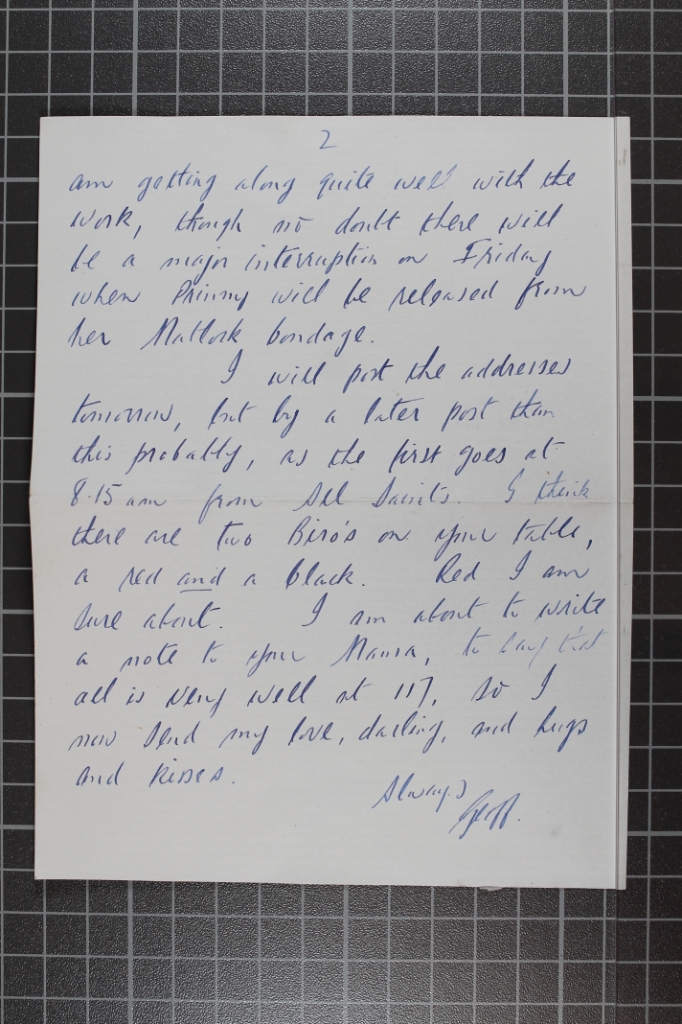 2
am getting along quite well with the
work, though no doubt there will
be a major interruption on Friday
when Prinny will be released from
her Matlock bondage.
I will post the addresses
tomorrow, but by a later post than
this probably, as the first goes at
8.15 am from All Saints. I think
there are two Biro's on your table,
a red and a black. Red I am
sure about. I am about to write
a note to your Mama, to say that
all is very well at 117, so I
now send my love, darling, and hugs
and kisses.
Always
Geoff.